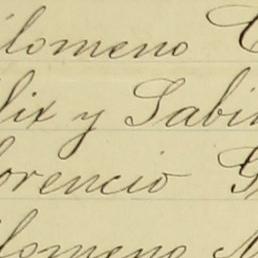 ilomeno
lix y Sabi
lorencio G
ilomeno